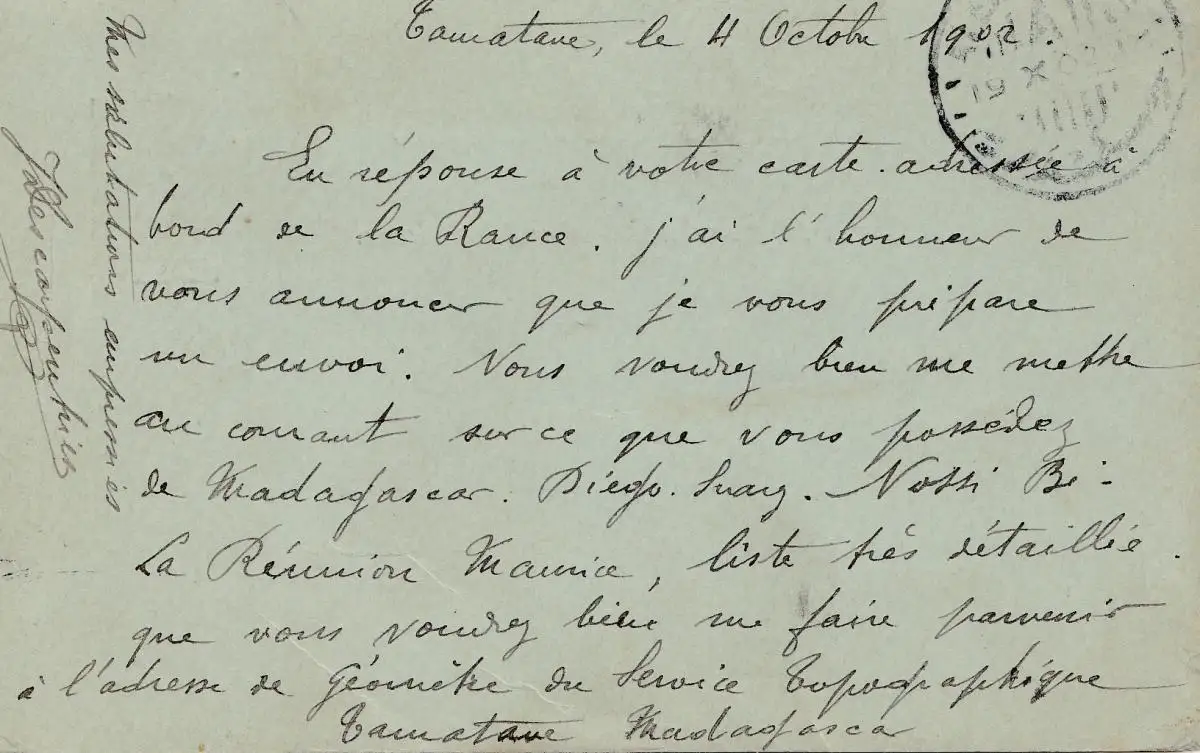 Tamatave, le 4 Octobre 1902.
En réponse à votre carte adressée à
bord de la Rance. j'ai l'honneur de
vous annoncer que je vous prépare
un envoi. Vous voudrez bien me mettre
au courant sur ce que vous possédez
de Madagascar. Diégo. Suarez. Nossi Bé -
La Réunion Maurice, liste très détaillée.
que vous voudrez bien me faire parvenir
à l'adresse de Géomètre du Service Topographique
Tamatave Madagascar
Mes salutations empressées